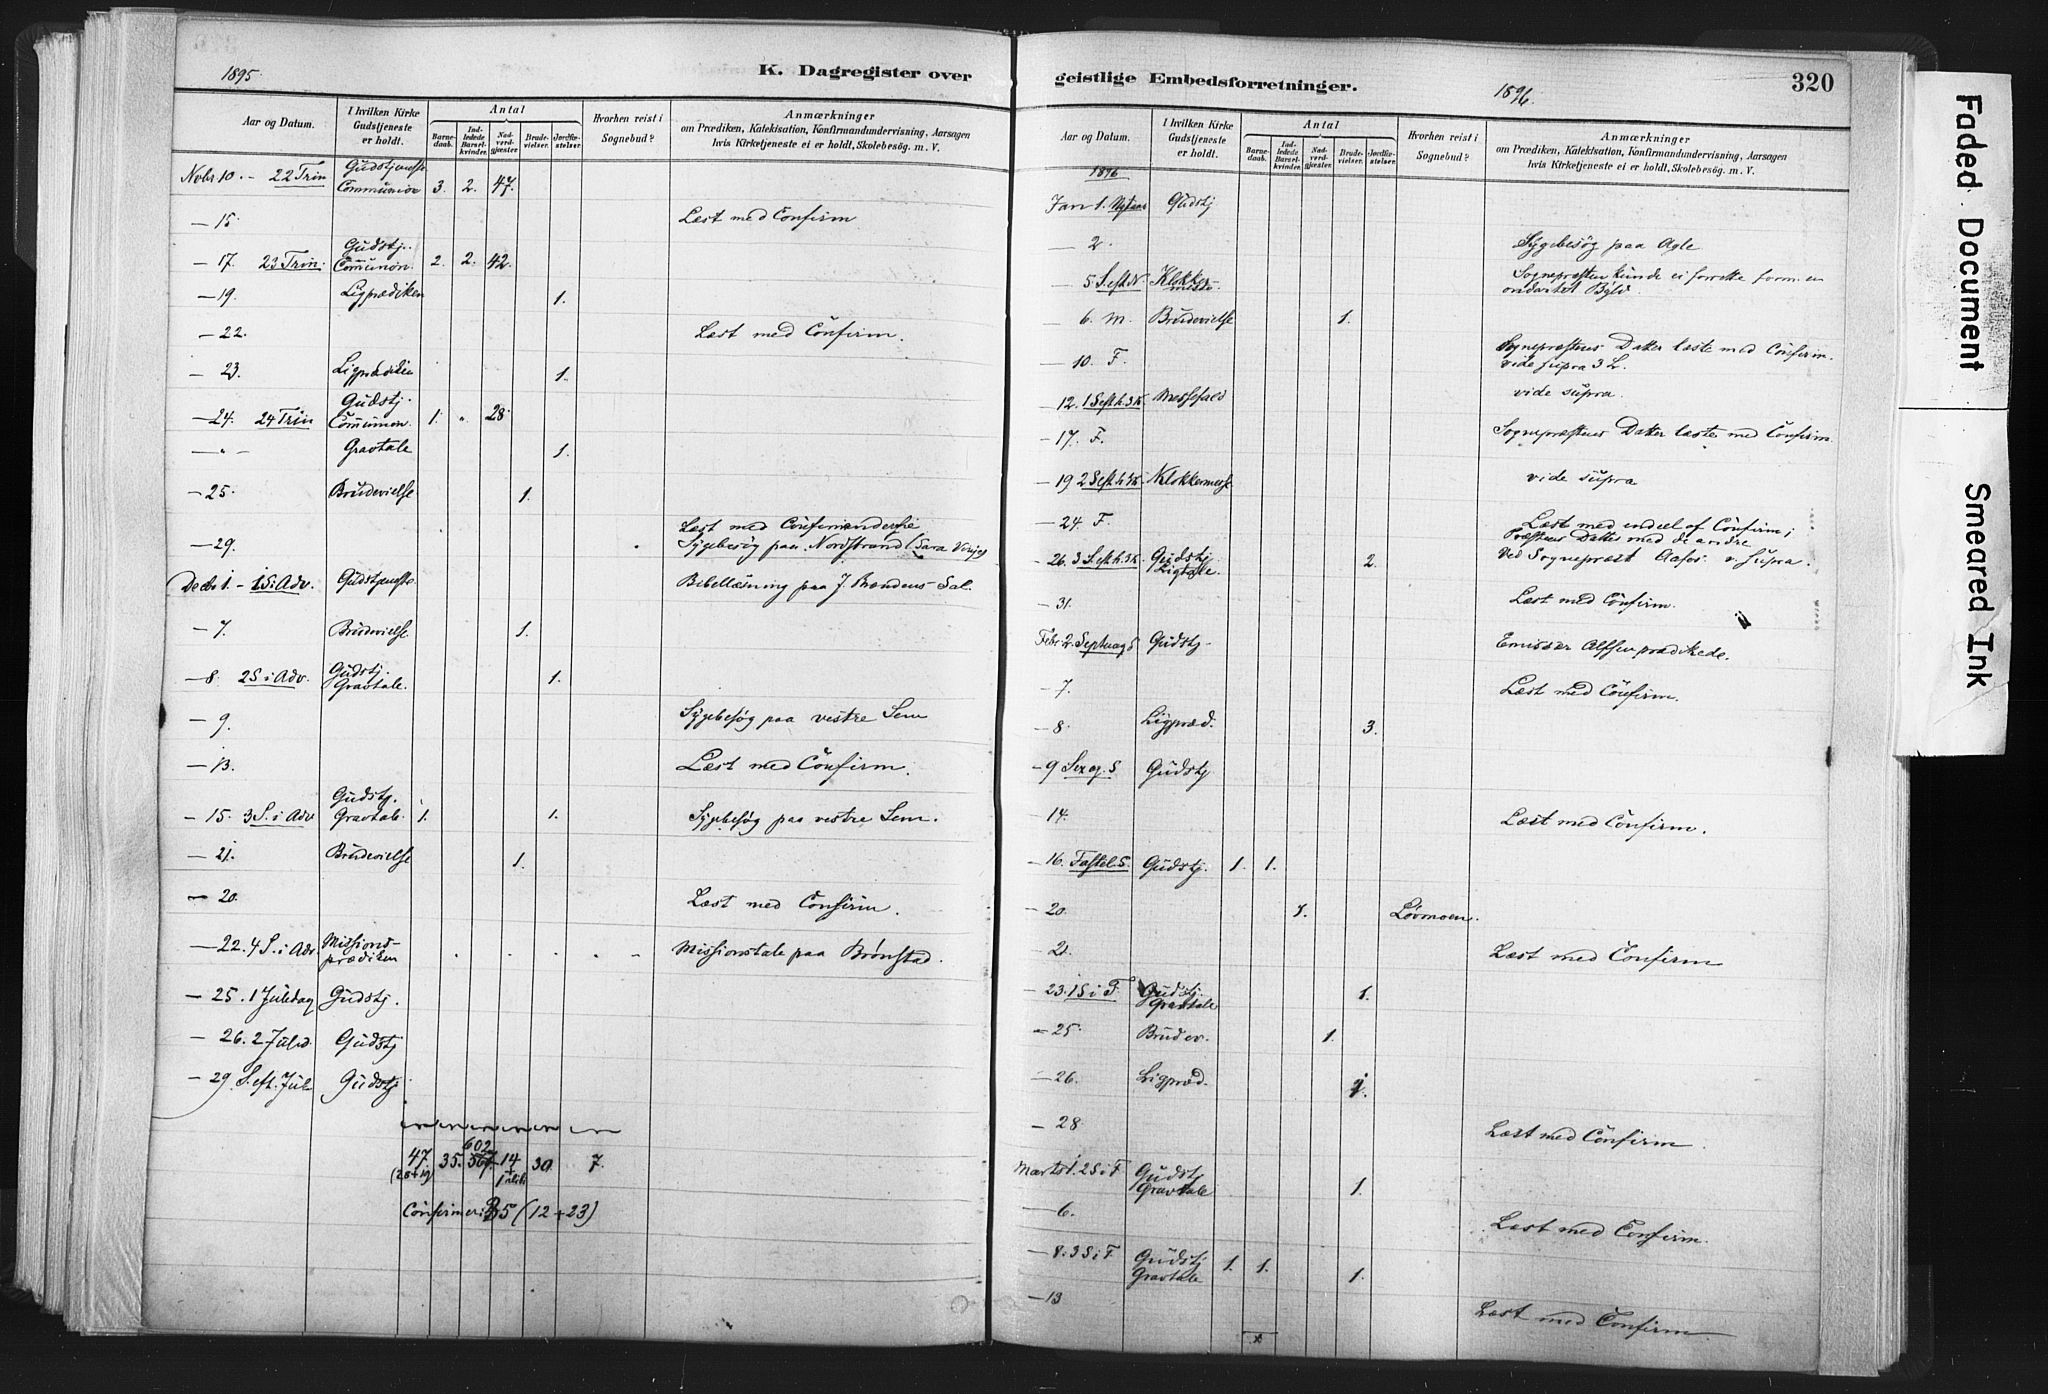 1895.
K. Dagregister over
Aar og Datum.
I hvilken Kirke Gudstjeneste er holdt.
Antal
Barne-daab.
Ind-ledede Barsel-kvinder.
Nad-verd-gjester.
Brude-vielser.
Jordfæ-stelser.
Hvorhen reist i Sognebud?
Anmærkninger
om Prædiken, Katekisation, Konfirmandundervisning, Aarsagen
hvis Kirketjeneste ei er holdt, Skolebesøg. m. V.
Novbr 10. - 22 Trin Gudstjeneste Communion 3. 2. 47.
— 15. Læst med Confirm
— 17. 23 Trin. Gudstj. Communion. 2. 2. 42.
— 19. Ligprædiken 1.
— 22. Læst med Confirm.
— 23. Ligprædiken 1.
— 24. 24 Trin Gudstj. Communion. 1. " 28.
— " — Gravtale 1.
— 25. Brudevielse 1.
Læst med Confirmanderne
— 29. Sygebesøg paa Nordstrand (Sara
Decbr 1. - 1 S. i Adv. Gudstjeneste Bibellæsning paa J. Sal.
— 7. Brudevielse 1.
— 8. 2 S i Adv. Gudstj. Gravtale. 1.
— 9. Sygebesøg paa vestre Sem
— 13. Læst med Confirm.
— 15. 3 S. i Adv Gudstj. Gravtale. 1. 1. Sygebesøg paa vestre Sem.
— 21. Brudevielse 1.
— 20. Læst med Confirm.
— 22. 4 S. i Adv. Missions-prædiken Missionstale paa Brønstad.
— 25. 1 Juledag Gudstj.
— 26. 2 Juled. Gudstj
— 29 S. eft. Jul Gudstj
602
47. 35. 567. 14 30. 7.
(28+19)
Confirmerede 35 (12 + 23)
geistlige Embedsforretninger.
1896.
320
Aar og Datum.
I hvilken Kirke Gudstjeneste er holdt.
Antal
Barne-daab.
Ind-ledede Barsel-kvinder.
Nad-verd-gjester.
Brude-vielser.
Jordfæ-stelser.
Hvorhen reist i Sognebud?
Anmærkninger
om Prædiken, Katekisation, Konfirmandundervisning, Aarsagen
hvis Kirketjeneste ei er holdt, Skolebesøg. m. V.
1896
Jan 1. Nytaar Gudstj
— 2. Sygebesøg paa Agle
— 5. S. eft N. Klokker messe. Sognepræsten kunde ei forrette form. en
ondartet Byld.
— 6. M. Brudevielse 1.
— 10. F. Sognepræstens Datter læste med Confirm.
vide supra 3 L.
— 12. 1 S eft h. 3 K Messefald vide supra.
— 17. F. Sognepræstens Datter læste med Confirm.
— 19 2 S eft h. 3 K. Klokkermesse vide supra
— 24 F. Læst med endeel af Confirm;
Præstens Datter med de andre
— 26. 3 S. eft h. 3 K. Gudstj. Ligtale. 2. Ved Sognepræst v. supra.
— 31. Læst med Confirm.
Febr. 2. Septuag S Gudstj. Emissær Alfsen prædikede.
— 7. Læst med Confirm.
— 8. Ligpræd. 3.
— 9 Sexag. S Gudstj
— 14. Læst med Confirm.
— 16. Fastel. S. Gudstj. 1. 1.
— 20. 1. Løvmoen.
— 21. Læst med Confirm
— 23. 1 S i F. Gudstj. Gravtale 1.
— 25. Brudev. 1.
— 26. Ligpræd.
— 28 Læst med Confirm.
Marts 1. 2 S i F. Gudstj Gravtale 1.
— 6. Læst med Confirm.
— 8. 3 S i F. Gudstj Gravtale 1. 1. 1.
— 13 Læst med Confirm.
x
Faded Document
Smeared Ink